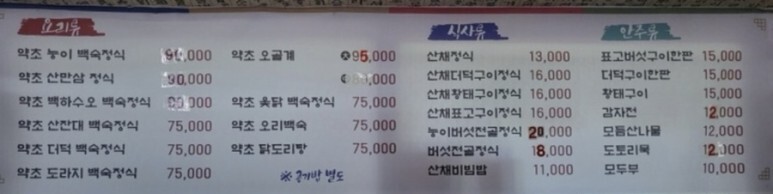 요리류
약초 능이 백숙정식 90,000
약초 산만삼 정식 90,000
약초 백하수오 백숙정식 80,000
약초 산잔대 백숙정식 75,000
약초 더덕 백숙정식 75,000
약초 도라지 백숙정식 75,000
약초 오골계 95,000
약초 옻닭 백숙정식 75,000
약초 오리백숙 75,000
약초 닭도리탕 75,000
※ 공기밥 별도
식사류
산채정식 13,000
산채더덕구이정식 16,000
산채황태구이정식 16,000
산채표고구이정식 16,000
능이버섯전골정식 20,000
버섯전골정식 18,000
산채비빔밥 11,000
안주류
표고버섯구이한판 15,000
더덕구이한판 15,000
황태구이 15,000
감자전 12,000
모듬산나물 12,000
도토리묵 12,000
모두부 10,000